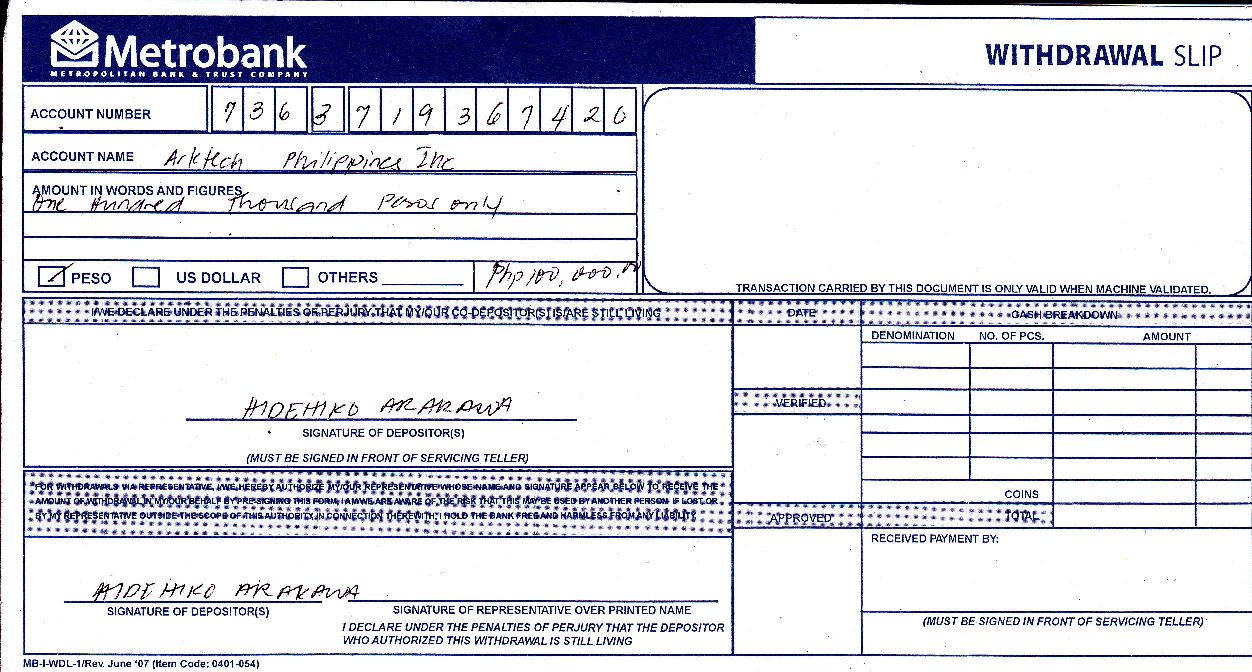 Metrobank
METROPOLITAN BANK & TRUST COMPANY
WITHDRAWAL SLIP
ACCOUNT NUMBER 7 3 6 3 7 1 9 3 6 7 4 2 0
ACCOUNT NAME Arktech Philippines Inc
AMOUNT IN WORDS AND FIGURES
One Hundred Thousand Pesos only
PESO US DOLLAR OTHERS Php 100,000.00
TRANSACTION CARRIED BY THIS DOCUMENT IS ONLY VALID WHEN MACHINE VALIDATED.
I/WE DECLARE UNDER THE PENALTIES OF PERJURY THAT MY/OUR CO-DEPOSITOR(S) IS/ARE STILL LIVING
HIDEHIKO ARAKAWA
SIGNATURE OF DEPOSITOR(S)
(MUST BE SIGNED IN FRONT OF SERVICING TELLER)
FOR WITHDRAWALS VIA REPRESENTATIVE, I/WE HEREBY AUTHORIZE MY/OUR REPRESENTATIVE WHOSE NAME AND SIGNATURE APPEAR BELOW TO RECEIVE THE
AMOUNT OF WITHDRAWAL IN MY/OUR BEHALF. BY PRE-SIGNING THIS FORM, I AM/WE ARE AWARE OF THE RISK THAT THIS MAY BE USED BY ANOTHER PERSON IF LOST, OR
BY MY REPRESENTATIVE OUTSIDE THE SCOPE OF THIS AUTHORITY. IN CONNECTION THEREWITH, I HOLD THE BANK FREE AND HARMLESS FROM ANY LIABILITY.
HIDEHIKO ARAKAWA
SIGNATURE OF DEPOSITOR(S)
SIGNATURE OF REPRESENTATIVE OVER PRINTED NAME
I DECLARE UNDER THE PENALTIES OF PERJURY THAT THE DEPOSITOR
WHO AUTHORIZED THIS WITHDRAWAL IS STILL LIVING
DATE
VERIFIED
APPROVED
CASH BREAKDOWN
DENOMINATION NO. OF PCS. AMOUNT
COINS
TOTAL
RECEIVED PAYMENT BY:
(MUST BE SIGNED IN FRONT OF SERVICING TELLER)
MB-I-WDL-1/Rev. June '07 (Item Code: 0401-054)